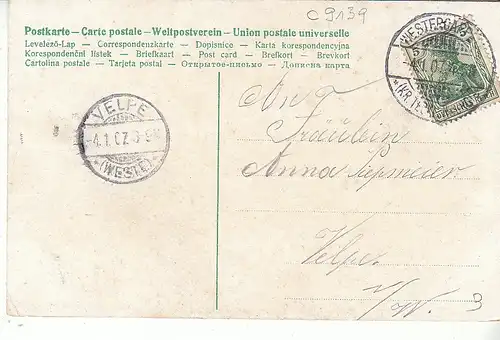 C9139
Postkarte — Carte postale — Weltpostverein — Union postale universelle
Levelező-Lap — Correspondenzkarte — Dopisnice — Karta korespondencyjna
Korespondenční lístek — Briefkaart — Post card — Brefkort — Brevkort
Cartolina postale — Tarjeta postal — Открытое-письмо — Дописна карта
WESTERCAPP
4.1.07
VELPE
4.1.07.
(WESTF)
An
Fräulein
Anna
Velpe
i/W.
3